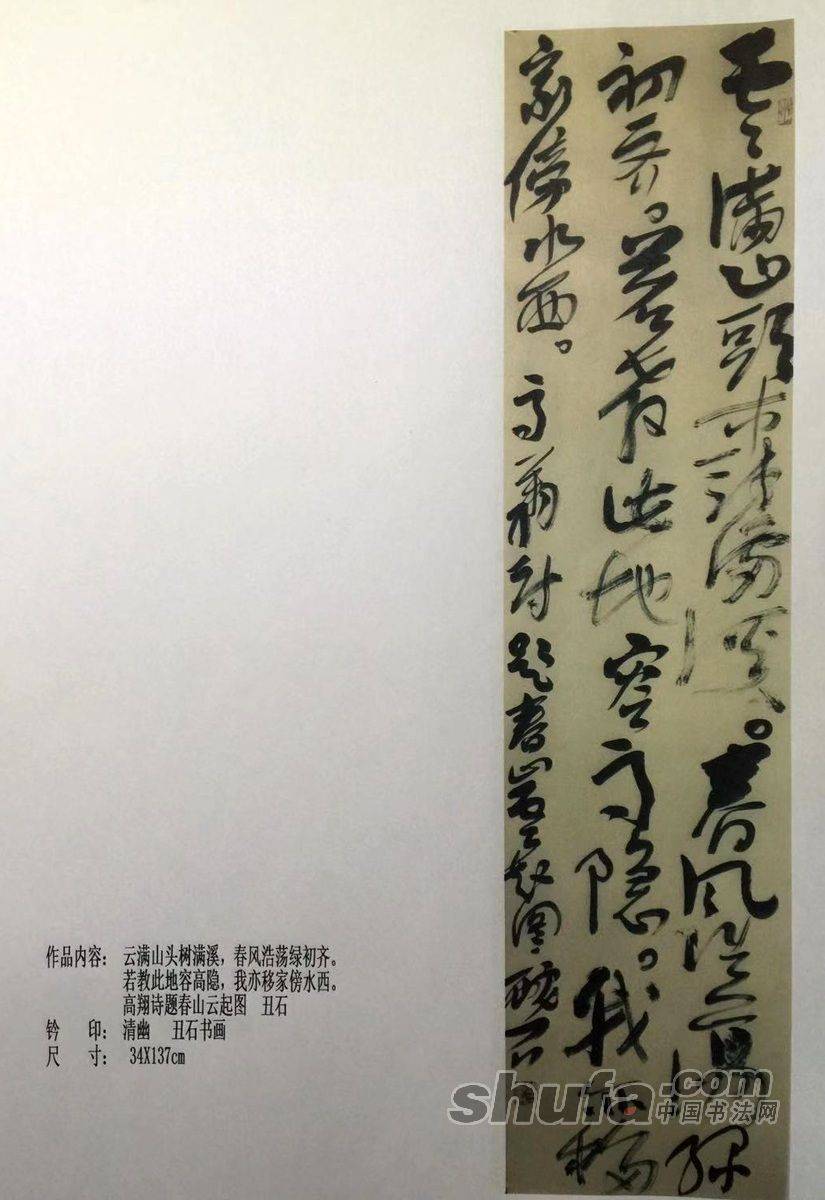 雲滿山頭樹滿溪。春風浩蕩綠
初齊。若教此地容高隱。我亦移
家傍水西。高翔詩題春山雲起圖 醜石
作品内容： 云满山头树满溪，春风浩荡绿初齐。
若教此地容高隐，我亦移家傍水西。
高翔诗题春山云起图 丑石
钤 印： 清幽 丑石书画
尺 寸： 34X137cm
shufa.com
中国书法网